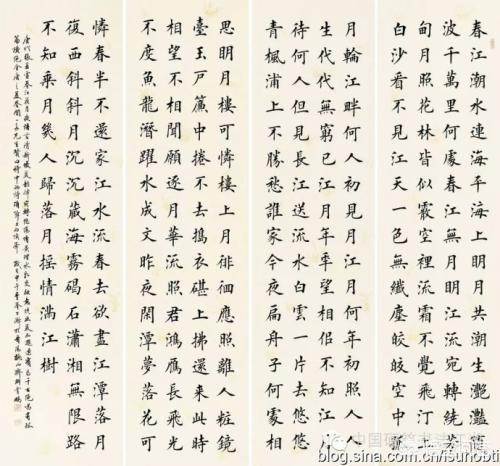 春江潮水連海平海上明月共潮生灩灩隨
波千萬里何處春江無月明江流宛轉繞芳
甸月照花林皆似霰空裡流霜不覺飛汀上
白沙看不見江天一色無纖塵皎皎空中孤
月輪江畔何人初見月江月何年初照人人
生代代無窮已江月年年望相似不知江月
待何人但見長江送流水白雲一片去悠悠
青楓浦上不勝愁誰家今夜扁舟子何處相
思明月樓可憐樓上月徘徊應照離人粧鏡
臺玉戶簾中捲不去擣衣碪上拂還來此時
相望不相聞願逐月華流照君鴻雁長飛光
不度魚龍潛躍水成文昨夜閑潭夢落花可
憐春半不還家江水流春去欲盡江潭落月
復西斜斜月沉沉藏海霧碣石瀟湘無限路
不知乘月幾人歸落月搖情滿江樹
blog.sina.com.cn/lsuhobti